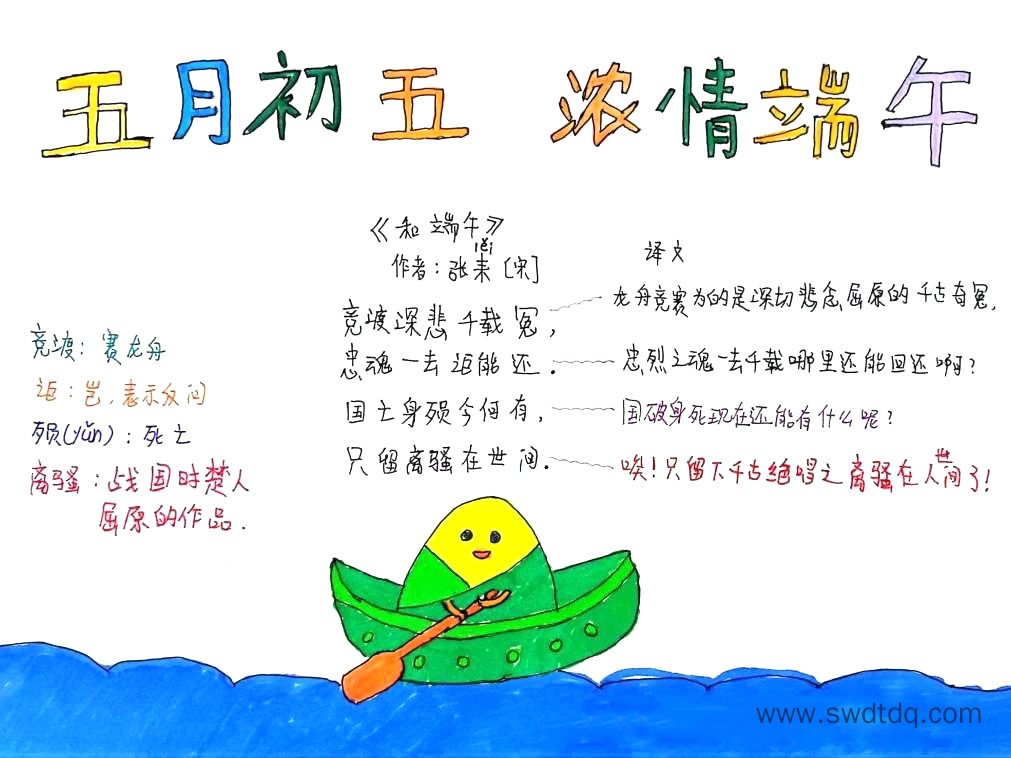 五月初五 浓情端午
《和端午》
lěi
作者：张耒〔宋〕
竞渡深悲千载冤，
忠魂一去讵能还．
国亡身殒今何有，
只留离骚在世间．
译文
龙舟竞赛为的是深切悲念屈原的千古奇冤，
忠烈之魂一去千载哪里还能回还啊？
国破身死现在还能有什么呢？
唉！只留下千古绝唱之离骚在人世间了！
竞渡：赛龙舟
讵：岂，表示反问
殒(yǔn)：死亡
离骚：战国时楚人
屈原的作品．
www.swdtdq.com